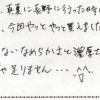 、真夏に長野に行った時に
、今回やっと買えました
ないなめらかさと濃厚
ゃ足りません・・・